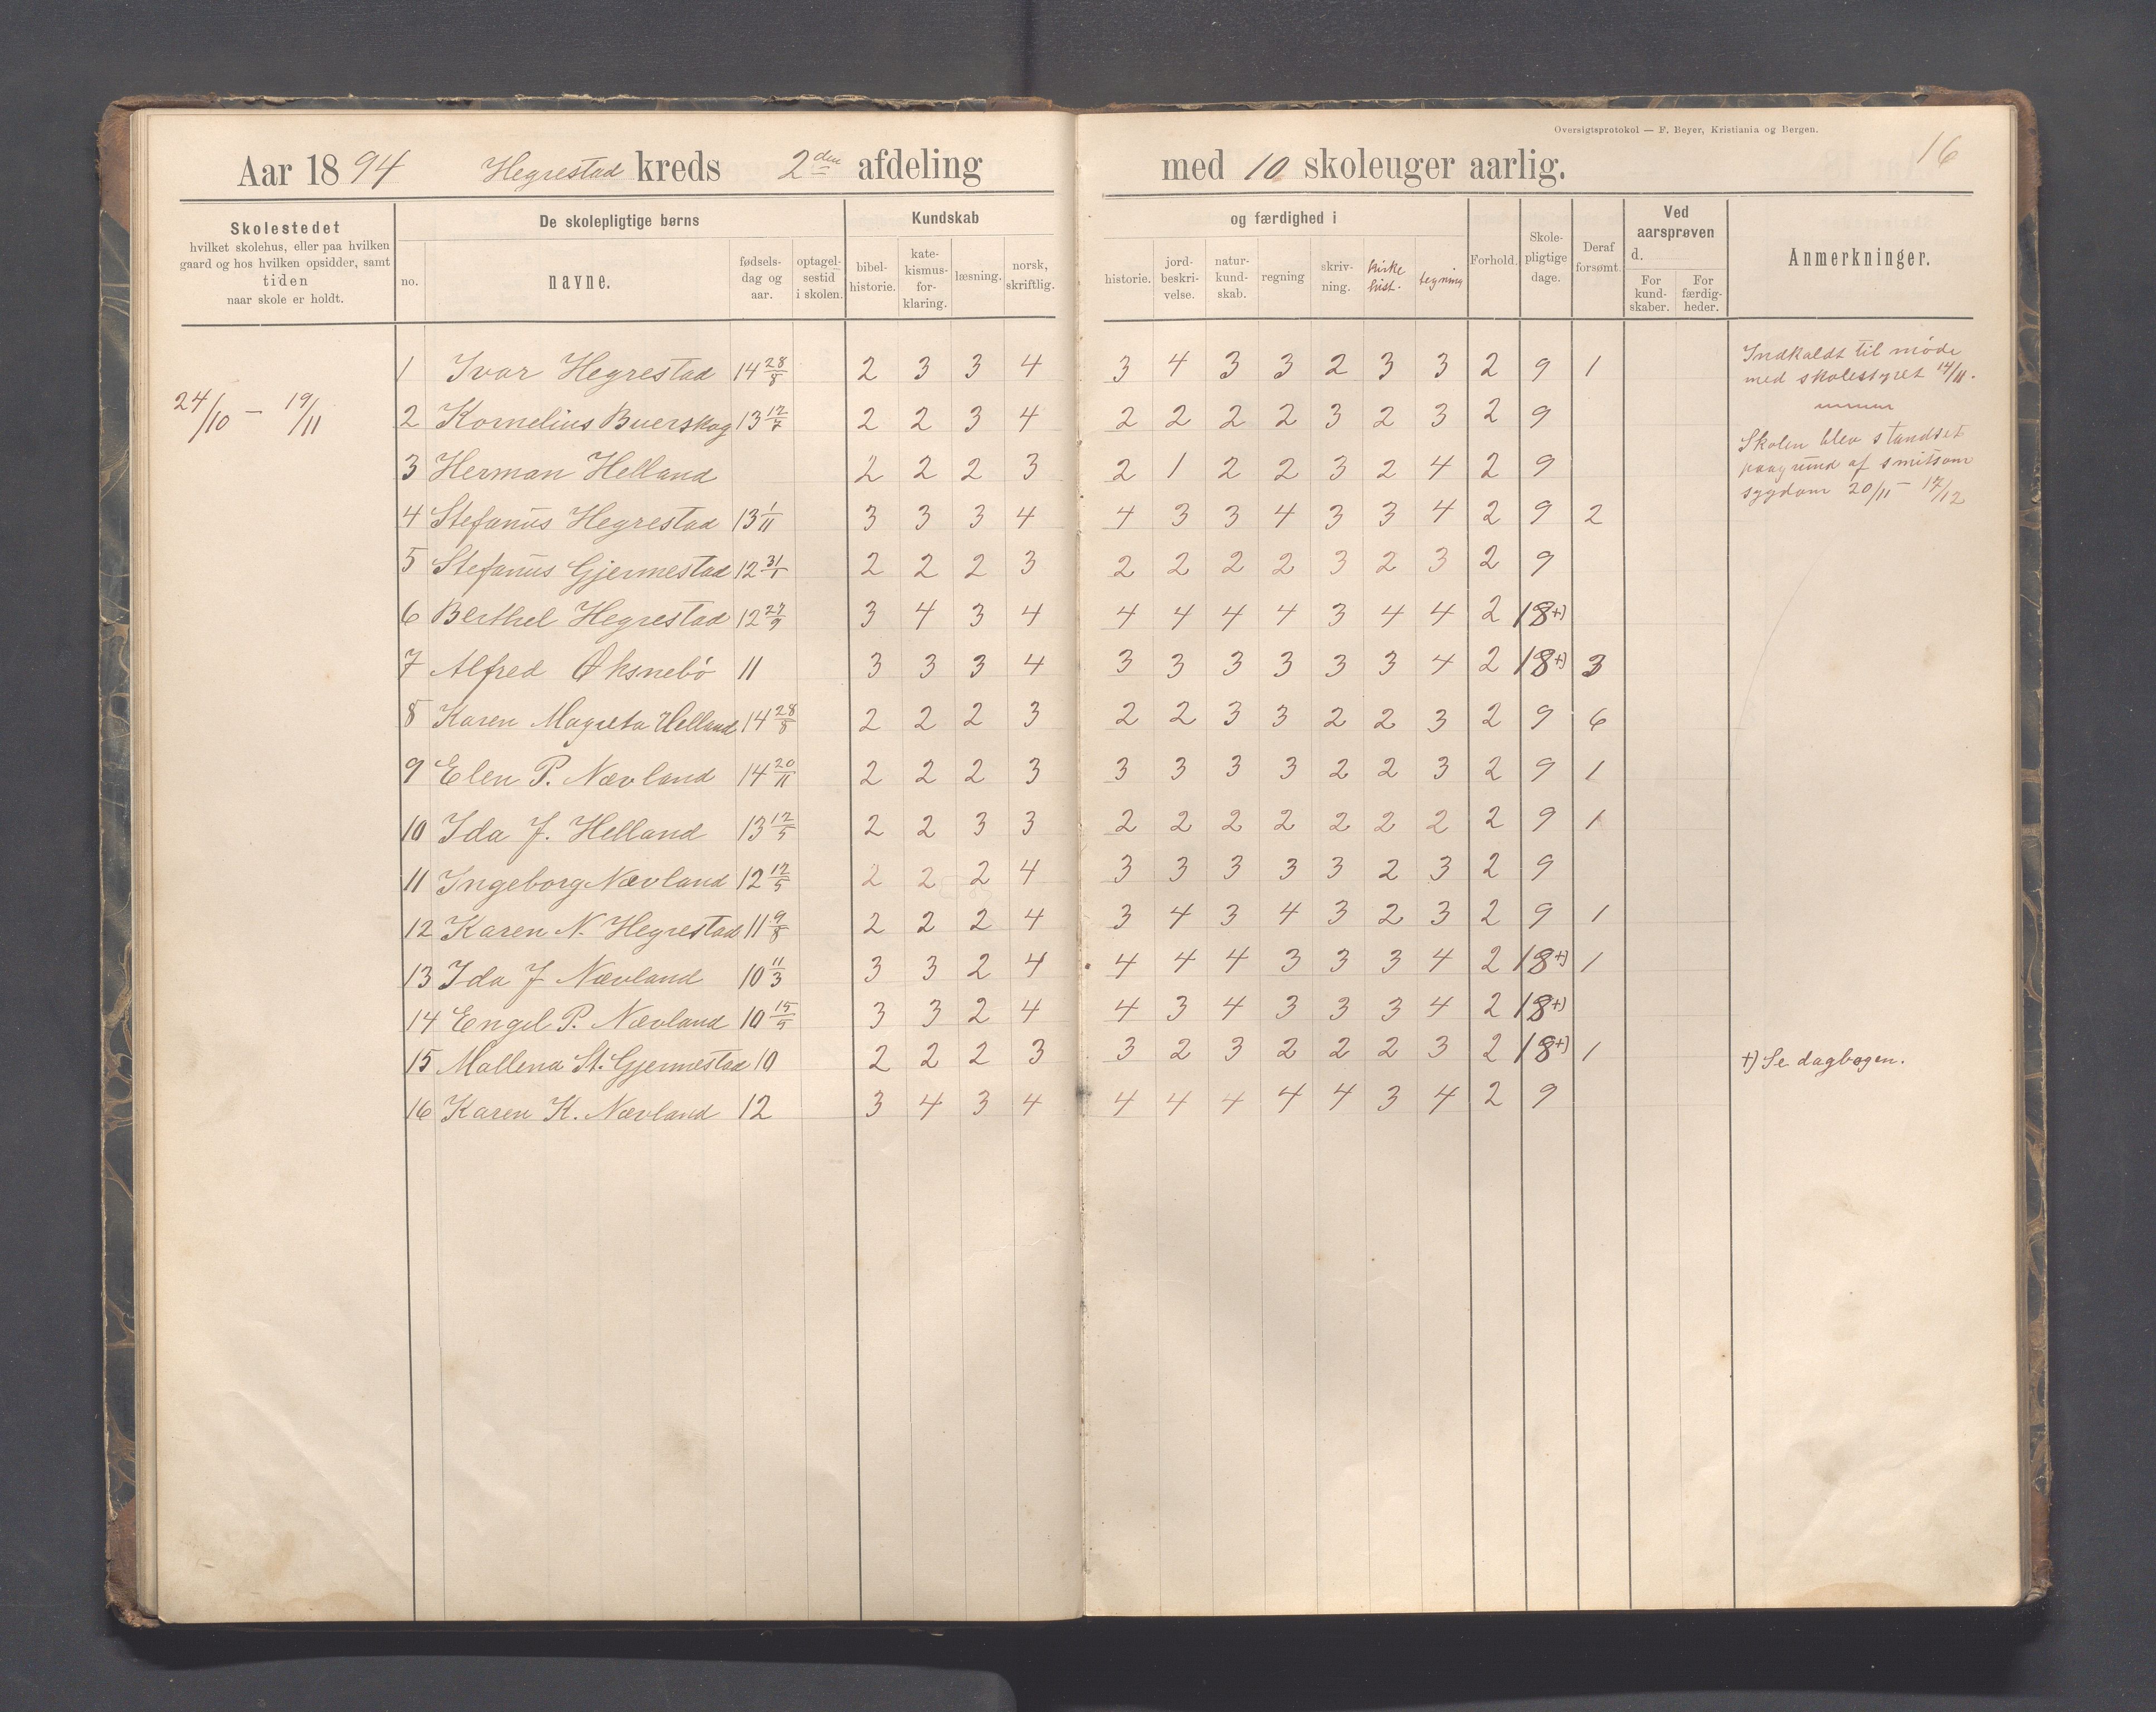 Oversigtsprotokol — F. Beyer, Kristiania og Bergen.
16
Aar 1894 Hegrestad kreds 2den afdeling med 10 skoleuger aarlig.
Skolestedet
hvilket skolehus, eller paa hvilken
gaard og hos hvilken opsidder, samt
tiden
naar skole er holdt.
De skolepligtige børns
no.
navne.
fødsels-
dag og
aar.
optagel-
sestid
i skolen.
Kundskab
bibel-
historie.
kate-
kismus-
for-
klaring.
læsning.
norsk,
skriftlig.
og færdighed i
historie.
jord-
beskri-
velse.
natur-
kund-
skab.
regning
skriv-
ning.
kirke
hist.
tegning
Forhold.
Skole-
pligtige
dage.
Deraf
forsømt.
Ved
aarsprøven
d.
For
kund-
skaber.
For
færdig-
heder.
Anmerkninger.
24/10 – 19/11
1 Ivar Hegrestad 14 28/8 2 3 3 4 3 4 3 3 2 3 3 2 9 1
2 Kornelius Buerskog 13 17/7 2 2 3 4 2 2 2 2 3 2 3 2 9
3 Herman Helland 2 2 2 3 2 1 2 2 3 2 4 2 9
4 Stefanus Hegrestad 13 1/11 3 3 3 4 4 3 3 4 3 3 4 2 9 2
5 Stefanus Gjermestad 12 31/1 2 2 2 3 2 2 2 2 3 2 3 2 9
6 Berthel Hegrestad 12 27/9 3 4 3 4 4 4 4 4 3 4 4 2 18+)
7 Alfred Øksnebö 11 3 3 3 4 3 3 3 3 3 3 4 2 18+) 3
8 Karen Magreta Helland 14 28/8 2 2 2 3 2 2 3 3 2 2 3 2 9 6
9 Elen P. Nævland 14 20/11 2 2 2 3 3 3 3 3 2 2 3 2 9 1
10 Ida J. Helland 13 17/5 2 2 3 3 2 2 2 2 2 2 2 2 9 1
11 Ingeborg Nævland 12 17/5 2 2 2 4 3 3 3 3 3 2 3 2 9
12 Karen N. Hegrestad 11 9/8 2 2 2 4 3 4 3 4 3 2 3 2 9 1
13 Ida J Nævland 10 11/3 3 3 2 4 4 4 4 3 3 3 4 2 18+) 1
14 Engel P. Nævland 10 15/5 3 3 2 4 4 3 4 3 3 3 4 2 18+)
15 Mallena St. Gjermestad 10 2 2 2 3 3 2 3 2 2 2 3 2 18+) 1
16 Karen K. Nævland 12 3 4 3 4 4 4 4 4 4 3 4 2 9
Indkaldt til møde
med skolestyret 14/11.
Skolen blev standset
paagrund af smitsom
sygdom 20/11 – 17/12
+) Se dagbogen.